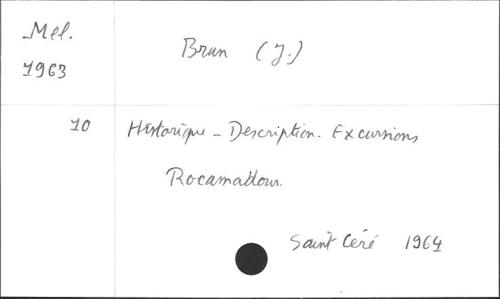 Mel.
1963
Brun (J.)
10
Historique - Description. Excursions
Rocamadour.
Saint Céré 1964